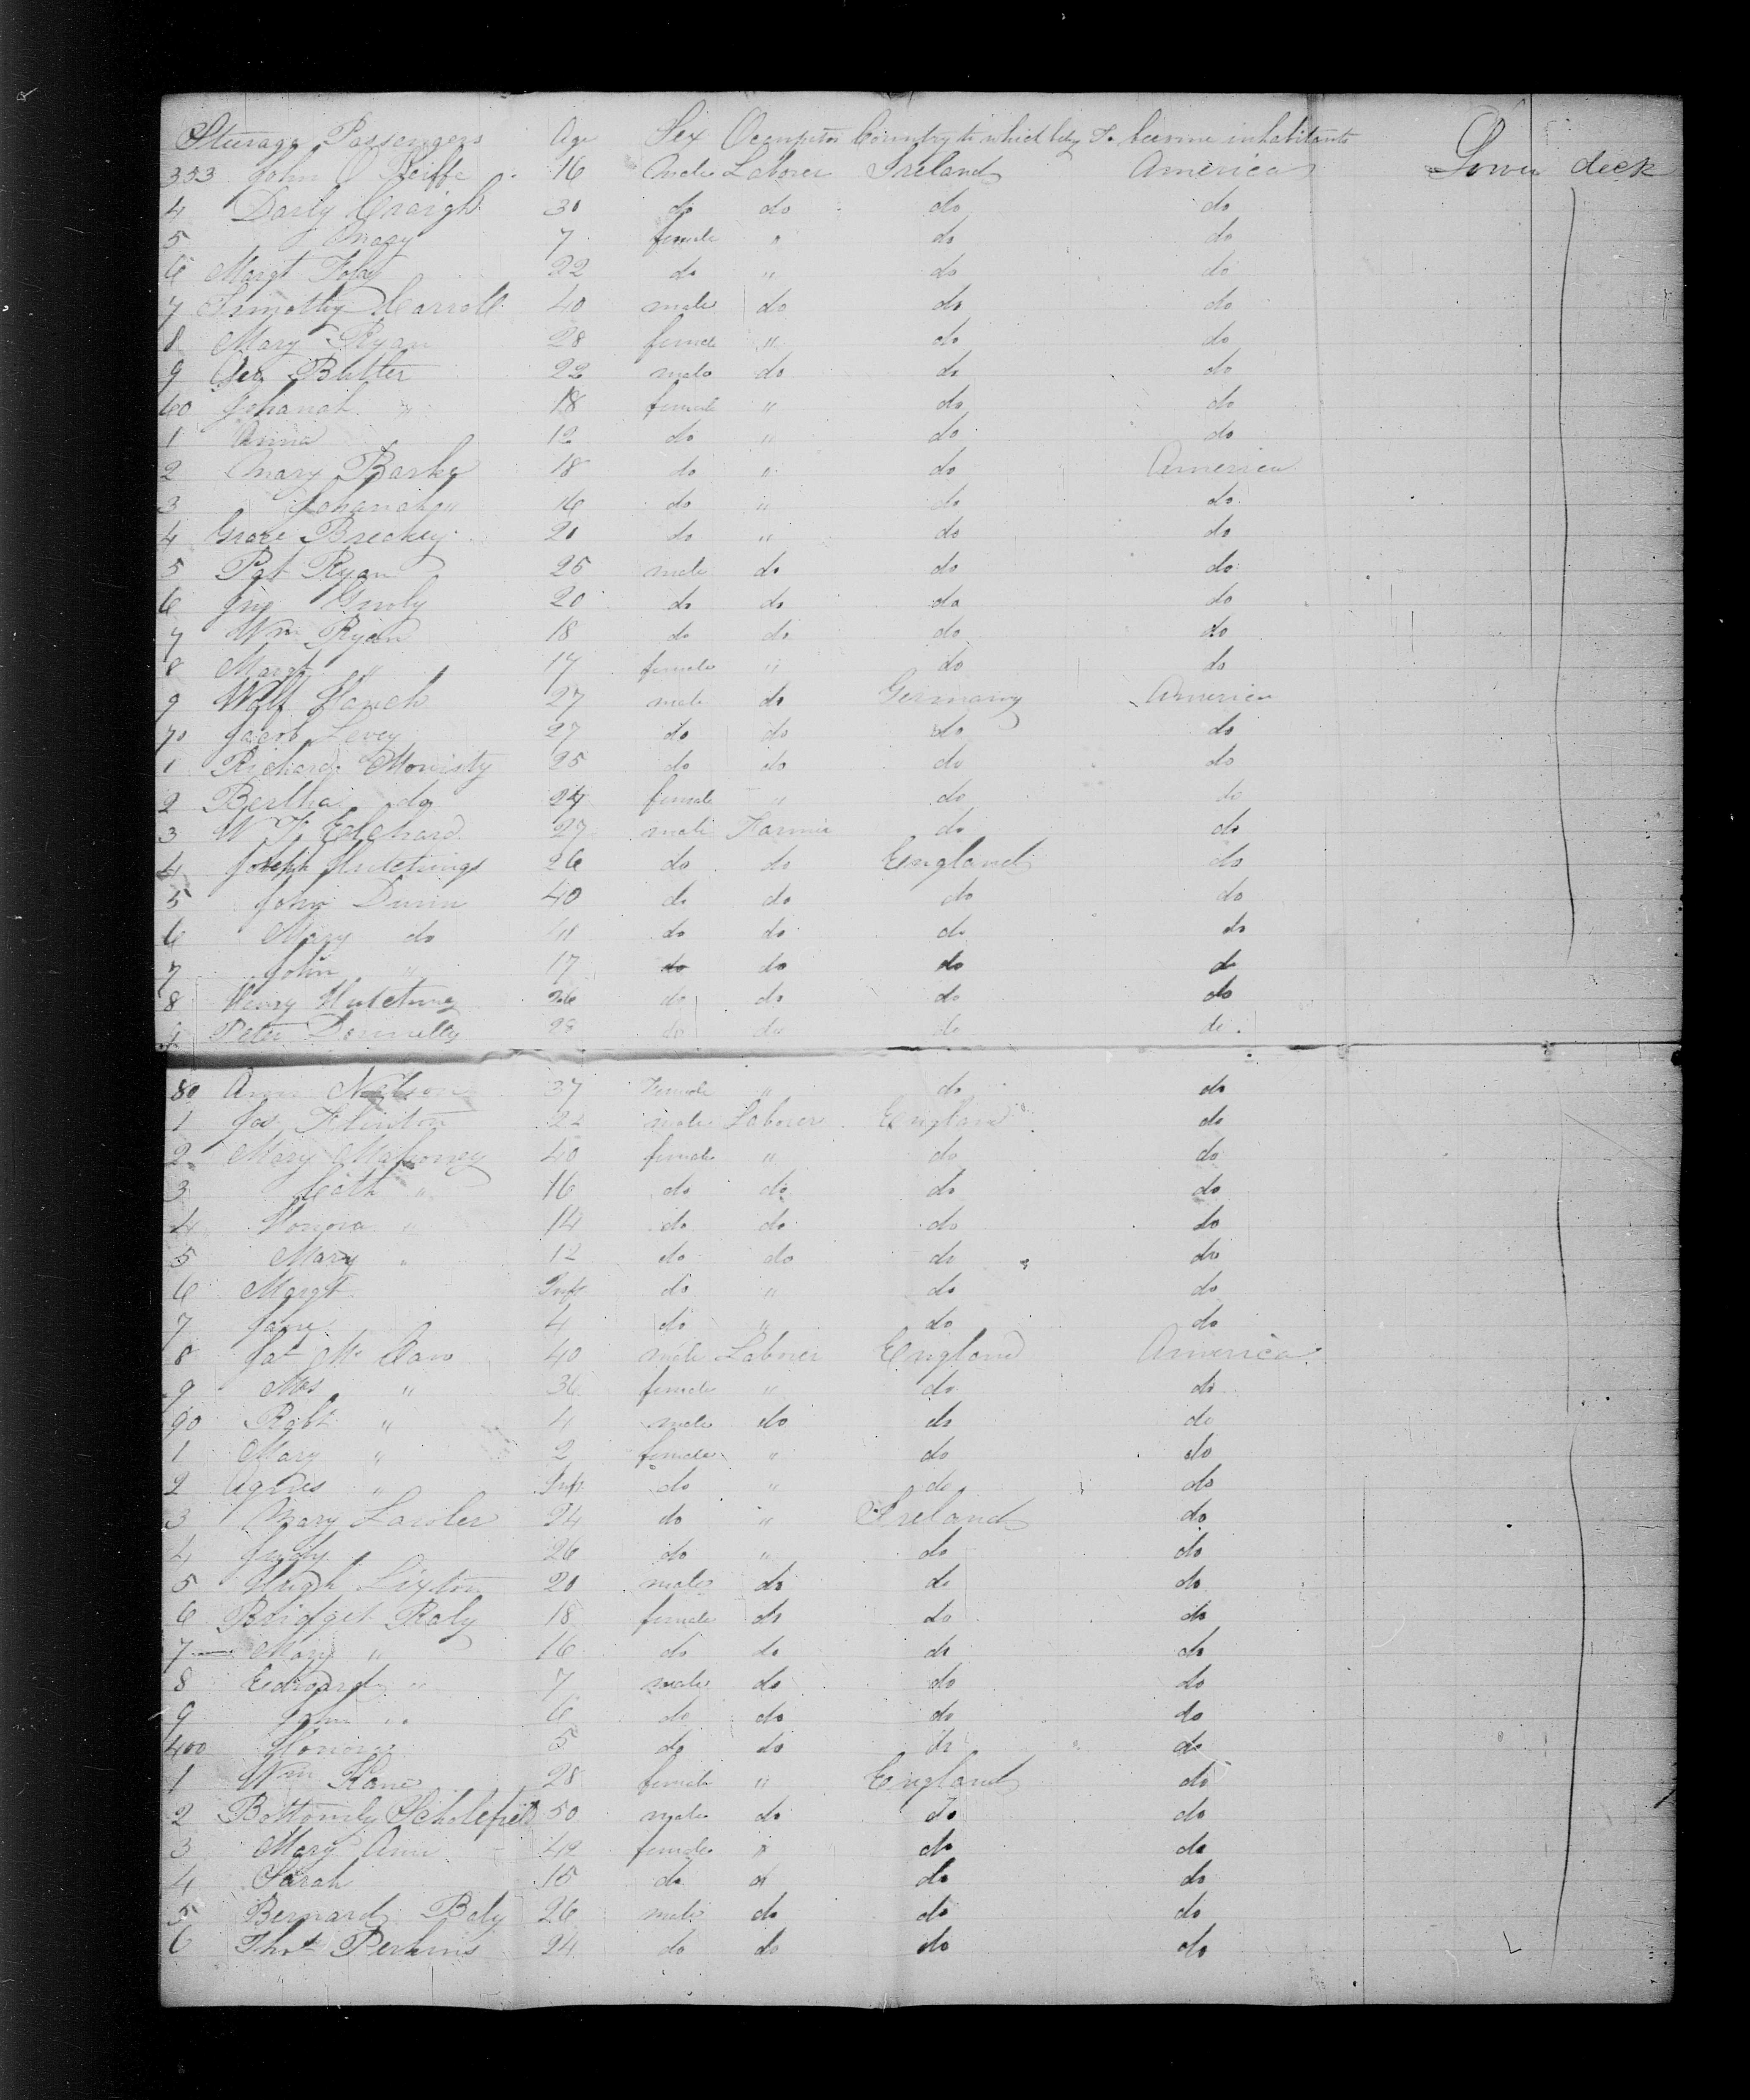 Sturage Passengers Age Sex Occupation Country to which they To become inhabitants
353 John O Keiffe 16 Male Laborer Ireland America Lower deck
4 Darly Creigh 30 do do do do
5 Mary 7 female " do do
6 Margt Foley 22 do " do do
7 Timothy Carroll 40 male do do do
8 Mary Ryan 28 female " do do
9 Butler 22 male do do do
60 Johanah " 18 female " do do
1 Anna 12 do " do do
2 Mary Barke 18 do " do America
3 Johanah " 16 do " do do
4 Grace Breckey 20 do " do do
5 Pat Ryan 25 male do do do
6 20 do do do do
7 Wm Ryan 18 do do do do
8 Margt " 17 female " do do
9 27 male do Germany America
70 Jacob Levey 27 do do do do
1 Richard 25 do do do do
2 Bertha do 24 female " do do
3 W 27 male Farmer do do
4 Joseph 26 do do England do
5 John Dunn 40 do do do do
6 Mary do do do do do
7 John " 17 do do do do
8 Henry 26 do do do do
9 Peter Donnelly 28 do do do do
80 Ann Nelson 37 Female " do do
1 Jos Flinton 22 male Laborer England do
2 Mary Mahoney 40 female " do do
3 Cath " 16 do do do do
4 Honora " 14 do do do do
5 Mary " 12 do do do do
6 Margt Inft do " do do
7 Jane 4 do " do do
8 Mc Caw 40 male Laborer England America
9 Mrs " 36 female " do do
90 Robt " 4 male do do do
1 Mary " 2 female " do do
2 Agnes " Inft do " do do
3 Mary Lawler 24 do " Ireland do
4 Judy 26 do " do do
5 Hugh Lixton 20 male do do do
6 Bridget Raly 18 female do do do
7 Mary " 16 do do do do
8 Edward " 7 male do do do
9 John " 6 do do do do
400 Honora 5 do do do do
1 Wm Kane 28 female " England do
2 Bottomly Scholefield 50 male do do do
3 Mary Ann female " do do
4 Sarah 15 do do do do
5 Bernard Baly 26 male do do do
6 Thos Perkins 24 do do do do